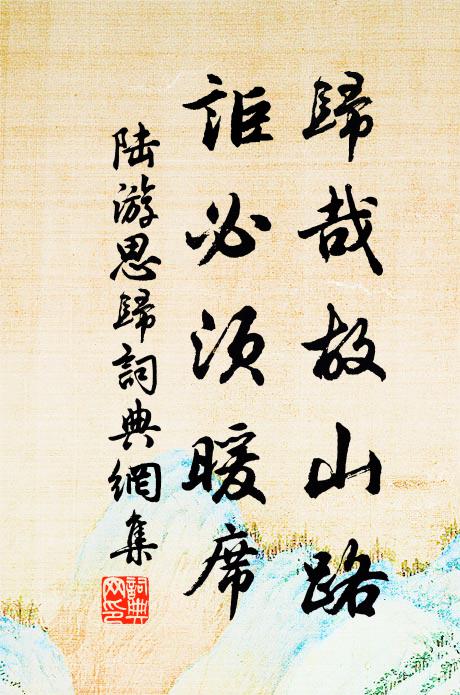 歸哉故山路
詎必須暖席
陸游思歸詞典網集
詞典